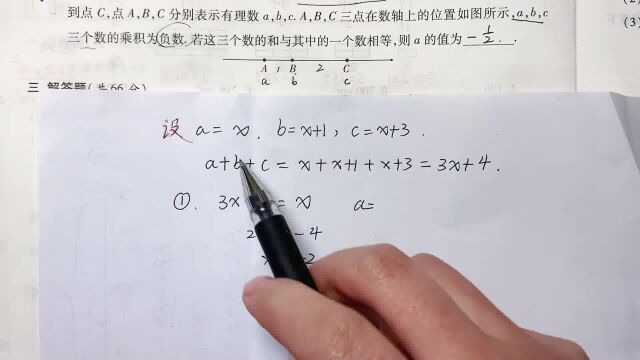 到点 C,点 A,B,C 分别表示有理数 a,b,c. A,B,C 三点在数轴上的位置如图所示,a,b,c
三个数的乘积为负数.若这三个数的和与其中的一个数相等,则 a 的值为 -1/2.
A 1 B 2 C
a b c
三 解答题(共66分)
(3)
设 a=x. b=x+1, c=x+3.
a+b+c = x+x+1+x+3 = 3x+4.
①. 3x = x a=
2 -4
2